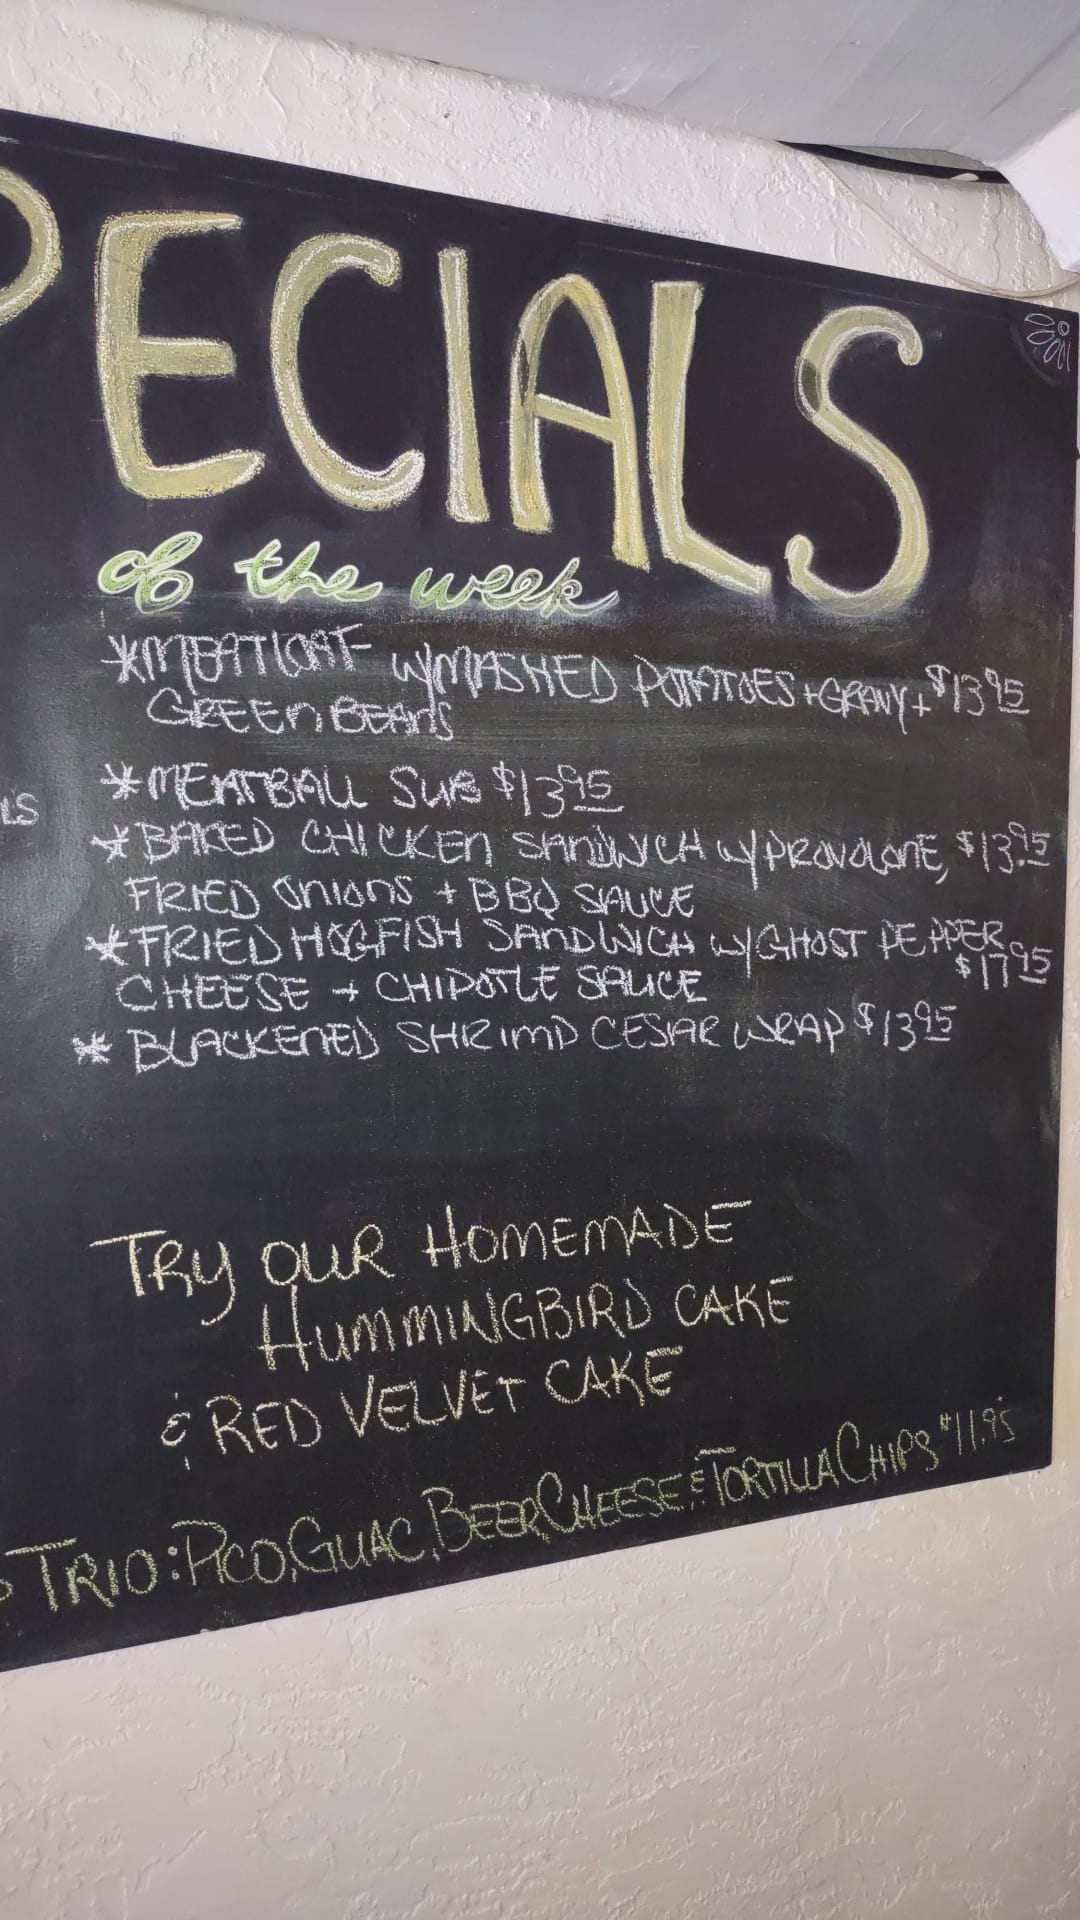 PECIALS
of the week
*MEATLOAF w/MASHED POTATOES + GRAVY + $13.95
GREEN BEANS
*MEATBALL SUB $13.95
LS
*BAKED CHICKEN SANDWICH w/PROVOLONE, $13.95
FRIED ONIONS + BBQ SAUCE
*FRIED HOGFISH SANDWICH w/GHOST PEPPER
CHEESE + CHIPOTLE SAUCE $17.95
* BLACKENED SHRIMP CESAR WRAP $13.95
TRY OUR HOMEMADE
HUMMINGBIRD CAKE
& RED VELVET CAKE
TRIO: PICO, GUAC, BEER CHEESE & TORTILLA CHIPS $11.95